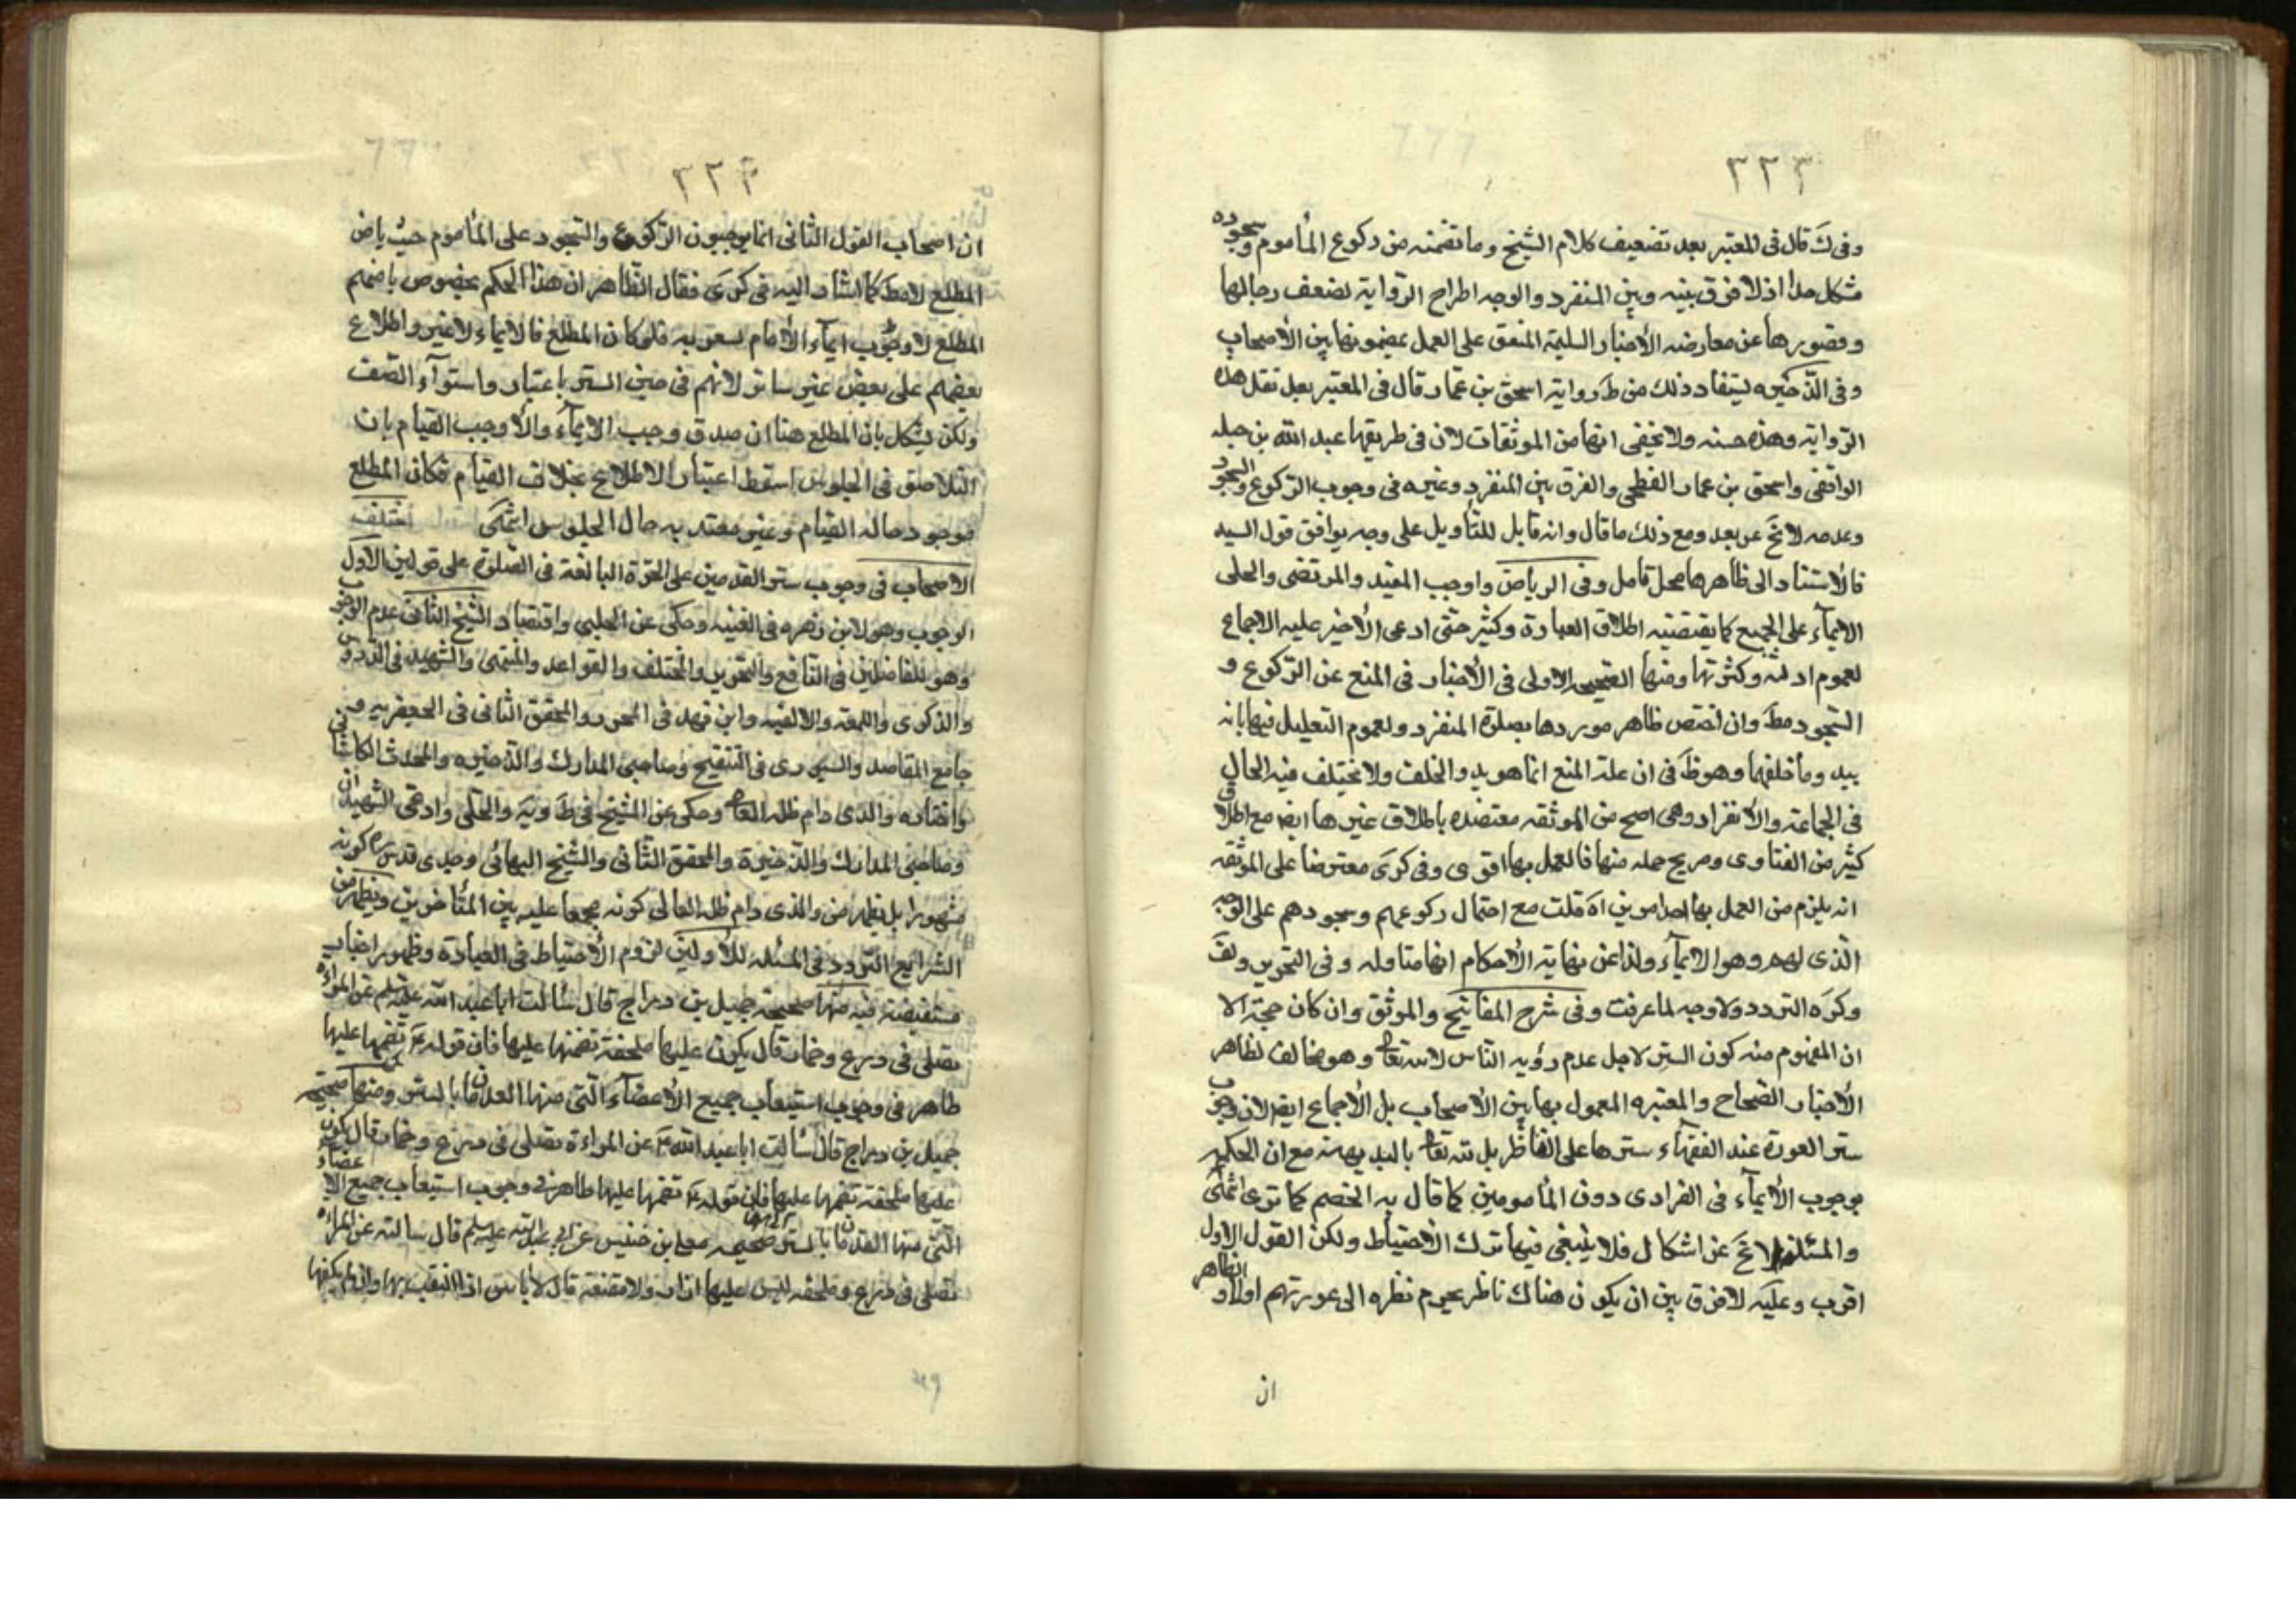 ٣٢٣
وفى ك قال فى المعتبر بعد تضعيف كلام الشيخ وما تضمنه من ركوع المأموم وسجوده
مشكل جدا اذ لا فرق بينه وبين المنفرد والوجه اطراح الرواية لضعف رجالها
وقصورها عن معارضه الأخبار السليمة المتفق على العمل بمضمونها بين الأصحاب
وفى الذخيره يستفاد ذلك من ط ورواية اسحق بن عمار قال فى المعتبر بعد نقل هذه
الرواية وهذه حسنه ولا يخفى انها من الموثقات لان فى طريقها عبد الله بن جبله
الواقفى واسحق بن عمار الفطحى والفرق بين المنفرد وغيره فى وجوب الركوع والسجود
وعدمه لا يخ عن بعد ومع ذلك ما قال وانه قابل للتأويل على وجه يوافق قول السيد
فالأستناد الى ظاهرها محل تامل وفى الرياض واوجب المفيد والمرتضى والحلى
الايمآء على الجميع كما يقتضيه اطلاق العبارة وكثير حتى ادعى الأخير عليه الاجماع
لعموم ادلته وكثرتها ومنها الصحيح الاولى فى الأخبار فى المنع عن الركوع و
السجود مط وان اختص ظاهر موردها بصلوة المنفرد ولعموم التعليل فيها بانه
يبد وما خلفهما وهو ظ فى ان علة المنع انما هو بدو الخلف ولا يختلف فيه الحال
فى الجماعة والأنفراد وهى اصح من الموثقه معتضده باطلاق غيرها ايضا مع اطلاق
كثير من الفتاوى وصريح جمله منها فالعمل بها اقوى وفى كرى معترضا على الموثقه
انه يلزم من العمل بها احد امرين اه قلت مع احتمال ركوعهم وسجودهم على الوجه
الذى لهم وهو الايمآء ولذا عن نهاية الأحكام انها متاوله وفى التحرير ولف
وكره التردد ولا وجه لما عرفت وفى شرح المفاتيح والموثق وان كان حجة الا
ان المفهوم منه كون الستر لاجل عدم رؤيه الناس لا لله تعا وهو مخالف لظاهر
الأخبار الصحاح والمعتبره المعمول بها بين الأصحاب بل الأجماع ايضا لان وجوب
ستر العورة عند الفقهاء سترها على الناظر بل لله تعا بالبديهة مع ان الحكم
بوجوب الأيمآء فى الفرادى دون المأمومين كما قال به الخصم كما ترى انتهى
والمسئلة لا تخ عن اشكال فلا ينبغى فيها ترك الأحتياط ولكن القول الاول
اقرب وعليه لا فرق بين ان يكون هناك ناظر يحرم نظره الى عورتهم اولا و الظاهر
ان
٣٢٤
ان اصحاب القول الثانى انما يوجبون الركوع والسجود على المأموم حيث يامن
المطلع لا مط كما اشار اليه فى كرى فقال الظاهر ان هذا الحكم مخصوص بامنهم
المطلع لا وجوب ايمآء الأمام لسعر به فلو كان المطلع فالايماء لا غير واطلاع
بعضهم على بعض غير ساتر لانهم فى حيز الستر باعتبار واستوآء الصف
ولكن يشكل بان المطلع هنا ان صدق وجب الايمآء والا وجب القيام بان
التلاصق فى الجلوس اسقط اعتبار الاطلاع بخلاف القيام فكان المطلع
موجود حاله القيام وغير معتد به حال الجلوس انتهى اختلف
الاصحاب فى وجوب ستر القدمين على الحرة البالغة فى الصلوة على قولين الاول
الوجوب وهو لابن زهره فى الغنيه وحكى عن الحلبى واقتصاد الشيخ الثانى عدم الوجوب
وهو للفاضلين فى النافع والتحرير والمختلف والقواعد والمنتهى والشهيد فى الدروس
والذكرى واللمعة والالفيه وابن فهد فى المحرر والمحقق الثانى فى الجعفريه و فى
جامع المقاصد والسيورى فى التنقيح وصاحبى المدارك والذخيره والمحدث الكاشانى
واختاره والدى دام ظله العا وحكى عن الشيخ فى ط ويه والحلى وادعى الشهيدان
وصاحبى المدارك والذخيرة والمحقق الثانى والشيخ البهائى وجدى قدس ره كونه
مشهورا بل يظهر من والدى دام ظله العالى كونه مجمعا عليه بين المتأخرين ويظهر من
الشرائع التردد فى المسئله للأولين لزوم الأحتياط فى العبادة وظهور اخبار
مستفيضة فيه منها صحيحة جميل بن دراج قال سألت ابا عبد الله عليه سلم عن المراءة
تصلى فى درع وخمار قال يكون عليها ملحفة تضمها عليها فان قوله ع تضمها عليها
ظاهر فى وجوب استيعاب جميع الأعضآء التى منها القدمان بالستر ومنها صحيحة
جميل بن دراج قال سألت ابا عبد الله ع عن المراءة تصلى فى درع وخمار قال يكون
عليها ملحفة تضمها عليها فان قوله ع تضمها عليها ظاهر فى وجوب استيعاب جميع الاعضاء
التى منها القدمان بالستر صحيحه معلى بن خنيس عن ابى عبد الله عليه سلم قال سالته عن المراءة
تصلى فى درع وملحفه ليس عليها ازار ولا مقنعة قال لا باس اذا التقب بها وان لم يكفها